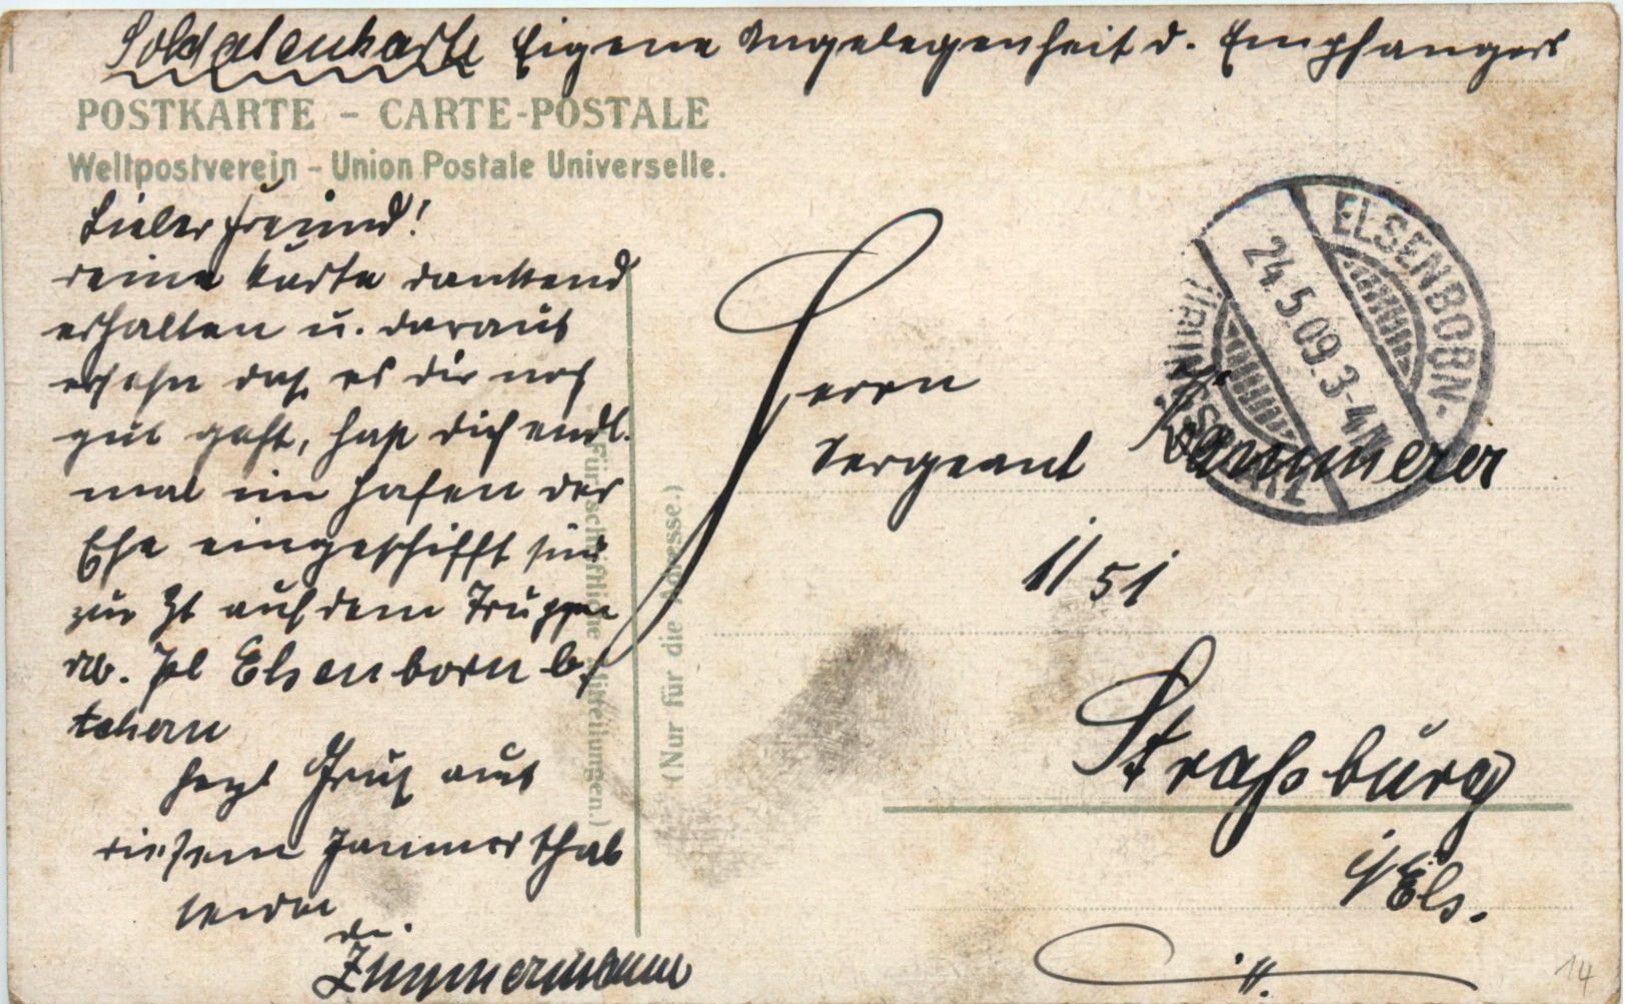 Soldatenkarte Eigene Angelegenheit d. Empfängers
POSTKARTE - CARTE-POSTALE
Weltpostverein - Union Postale Universelle.
Lieber Freund!
Deine Karte dankend
erhalten u. daraus
ersehn daß es dir noch
gut geht, hast dich endl.
mal im Hafen der
Ehe eingeschifft sind
zur Zt auf dem Truppen
üb. Pl Elsenborn b.
Herzl Gruß aus
diesem Jammerthal
sendet
dein
Zimmermann
Für schriftliche Mitteilungen.)
(Nur für die Adresse.)
ELSENBORN-
24.5.09.3-4N
Herrn
Sergeant Kammerer
1/51
Straßburg
i/Els.
14